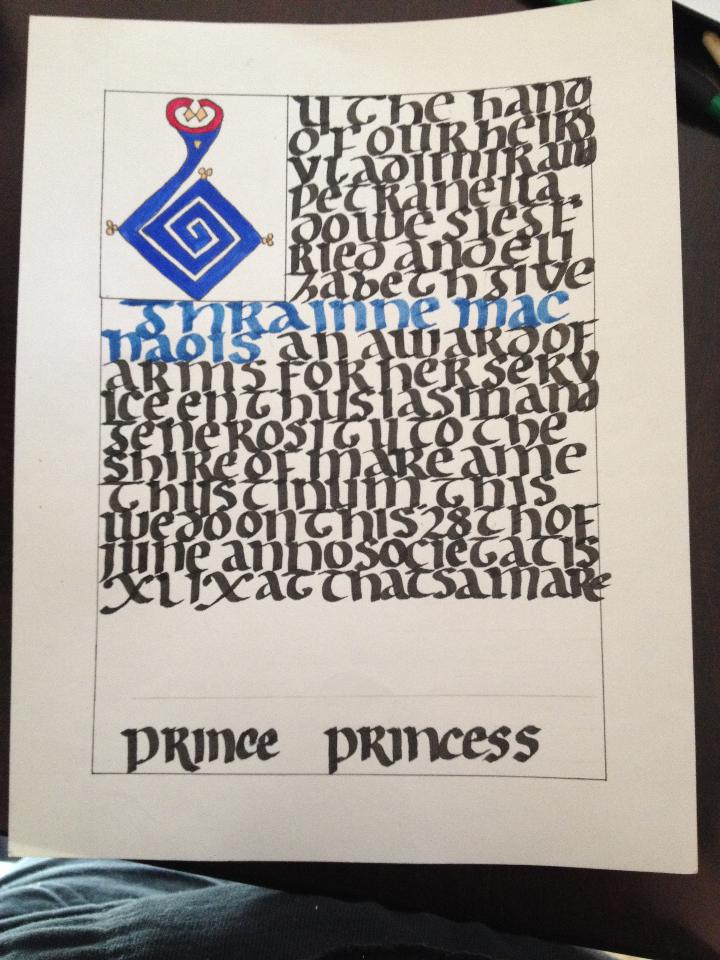 y the hand
of our heirs
vladimir and
petranella,
do we sieʃ
ried and eli
zabeth give
Ghrainne mac
naois an award of
arms for her serv
ice enthusiasm and
generosity to the
shire of mare ame
thystinum this
we do on this 28th of
June anno societatis
XLIX at thatsamare
prince princess